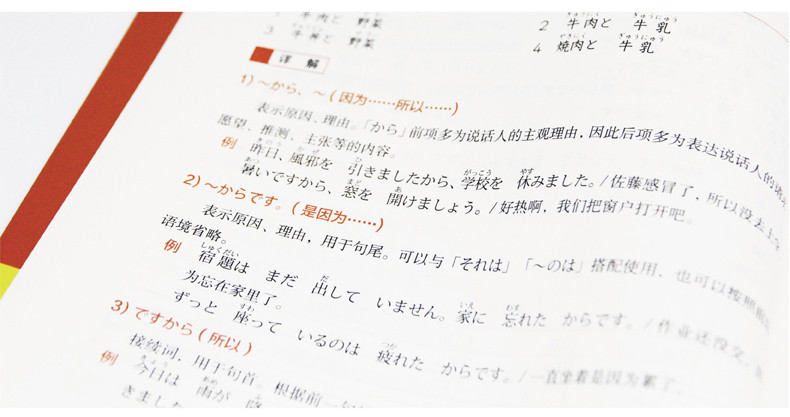 牛肉と 野菜
2 牛肉と 牛乳
3 牛丼と 野菜
4 焼肉と 牛乳
详解
1)～から、～(因为……所以……)
表示原因、理由。「から」前项多为说话人的主观理由，因此后项多为表达说话人的
愿望、推测、主张等的内容。
例 昨日、風邪を 引きましたから、学校を 休みました。/佐藤感冒了，所以没去上
暑いですから、窓を 開けましょう。/好热啊，我们把窗户打开吧。
2)～からです。(是因为……)
表示原因、理由，用于句尾。可以与「それは」「～のは」搭配使用，也可以按照
语境省略。
例 宿題は まだ 出して いません。家に 忘れた からです。/作业还没交，
为忘在家里了。
ずっと 座って いるのは 疲れた からです。/一直坐着是因为累了。
3)ですから(所以)
接续词，用于句首。根据前一句
例 今日は 雨が 降
きました